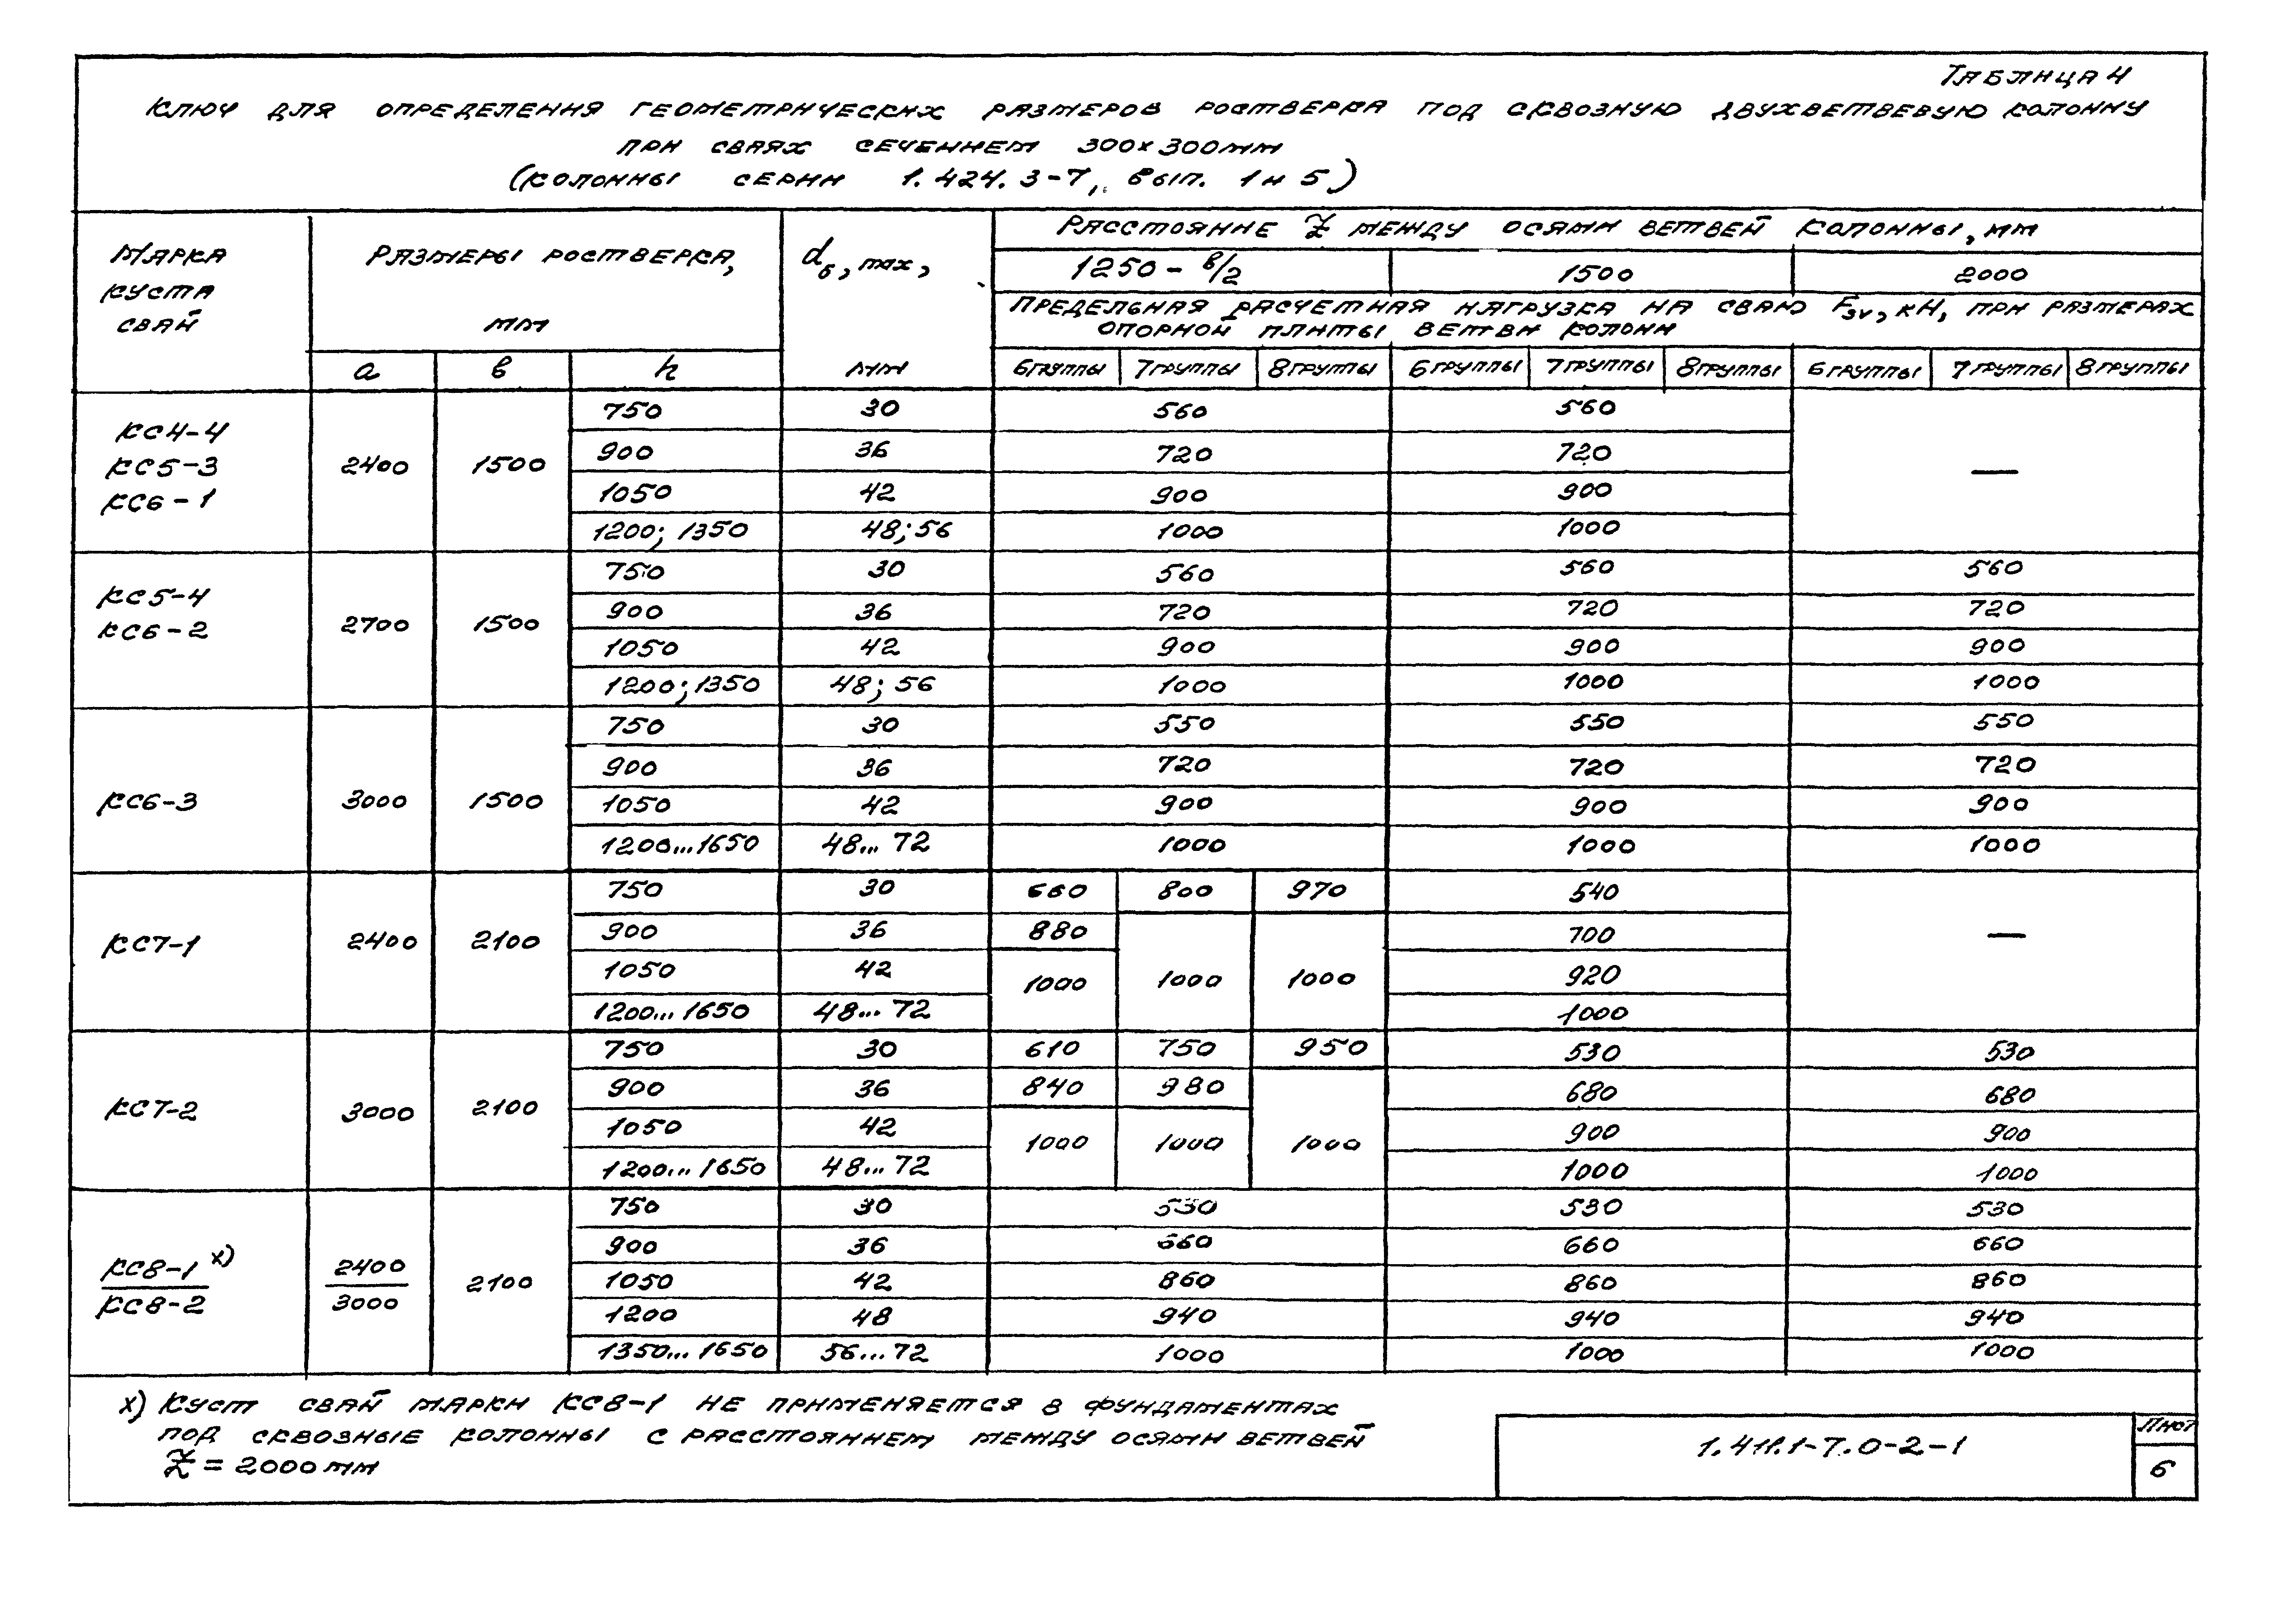 Таблица 4
Ключ для определения геометрических размеров ростверка под сквозную двухветвевую колонну
при сваях сечением 300х300мм
(колонны серии 1.424.3-7, вып. 1 и 5)
Марка куста свай
Размеры ростверка, мм
dб, max, мм
Расстояние Z между осями ветвей колонны, мм
1250 - в/2 1500 2000
Предельная расчетная нагрузка на сваю Fзv, кН, при размерах
опорной плиты ветви колонн
а в h 6 группы 7 группы 8 группы 6 группы 7 группы 8 группы 6 группы 7 группы 8 группы
КС4-4
КС5-3
КС6-1
2400 1500
750 30 560 560
900 36 720 720
1050 42 900 900
1200; 1350 48; 56 1000 1000
—
КС5-4
КС6-2
2700 1500
750 30 560 560 560
900 36 720 720 720
1050 42 900 900 900
1200; 1350 48; 56 1000 1000 1000
КС6-3
3000 1500
750 30 550 550 550
900 36 720 720 720
1050 42 900 900 900
1200...1650 48...72 1000 1000 1000
КС7-1
2400 2100
750 30 660 800 970 540
900 36 880 700
1050 42 1000 1000 1000 920
1200...1650 48...72 1000
—
КС7-2
3000 2100
750 30 610 750 950 530 530
900 36 840 980 680 680
1050 42 1000 1000 1000 900 900
1200...1650 48...72 1000 1000
КС8-1 х)
КС8-2
2400
3000
2100
750 30 530 530 530
900 36 660 660 660
1050 42 860 860 860
1200 48 940 940 940
1350...1650 56...72 1000 1000 1000
х) Куст свай марки КС8-1 не применяется в фундаментах
под сквозные колонны с расстоянием между осями ветвей
Z = 2000 мм
1.411.1-7.0-2-1
Лист
6